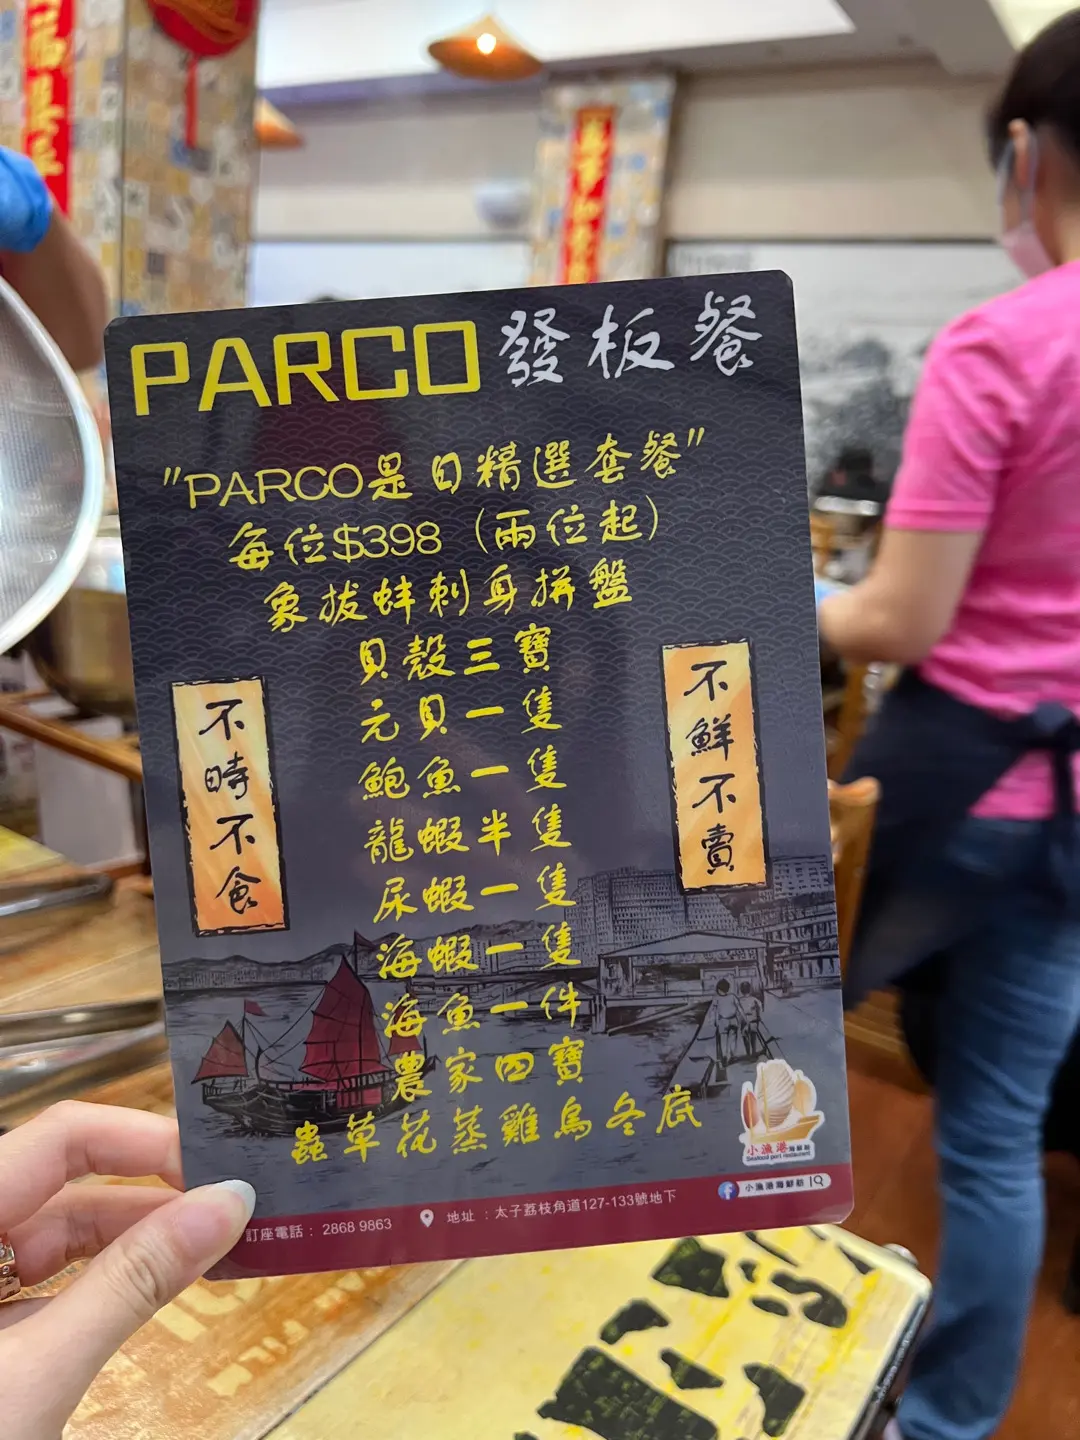 PARCO 發板餐
"PARCO是日精選套餐"
每位$398（兩位起）
象拔蚌刺身拼盤
貝殼三寶
元貝一隻
鮑魚一隻
龍蝦半隻
尿蝦一隻
海蝦一隻
海魚一件
農家四寶
蟲草花蒸雞烏冬底
不時不食
不鮮不賣
小漁港海鮮舫
Seafood port restaurant
訂座電話：2868 9863
地址：太子荔枝角道127-133號地下
小漁港海鮮舫